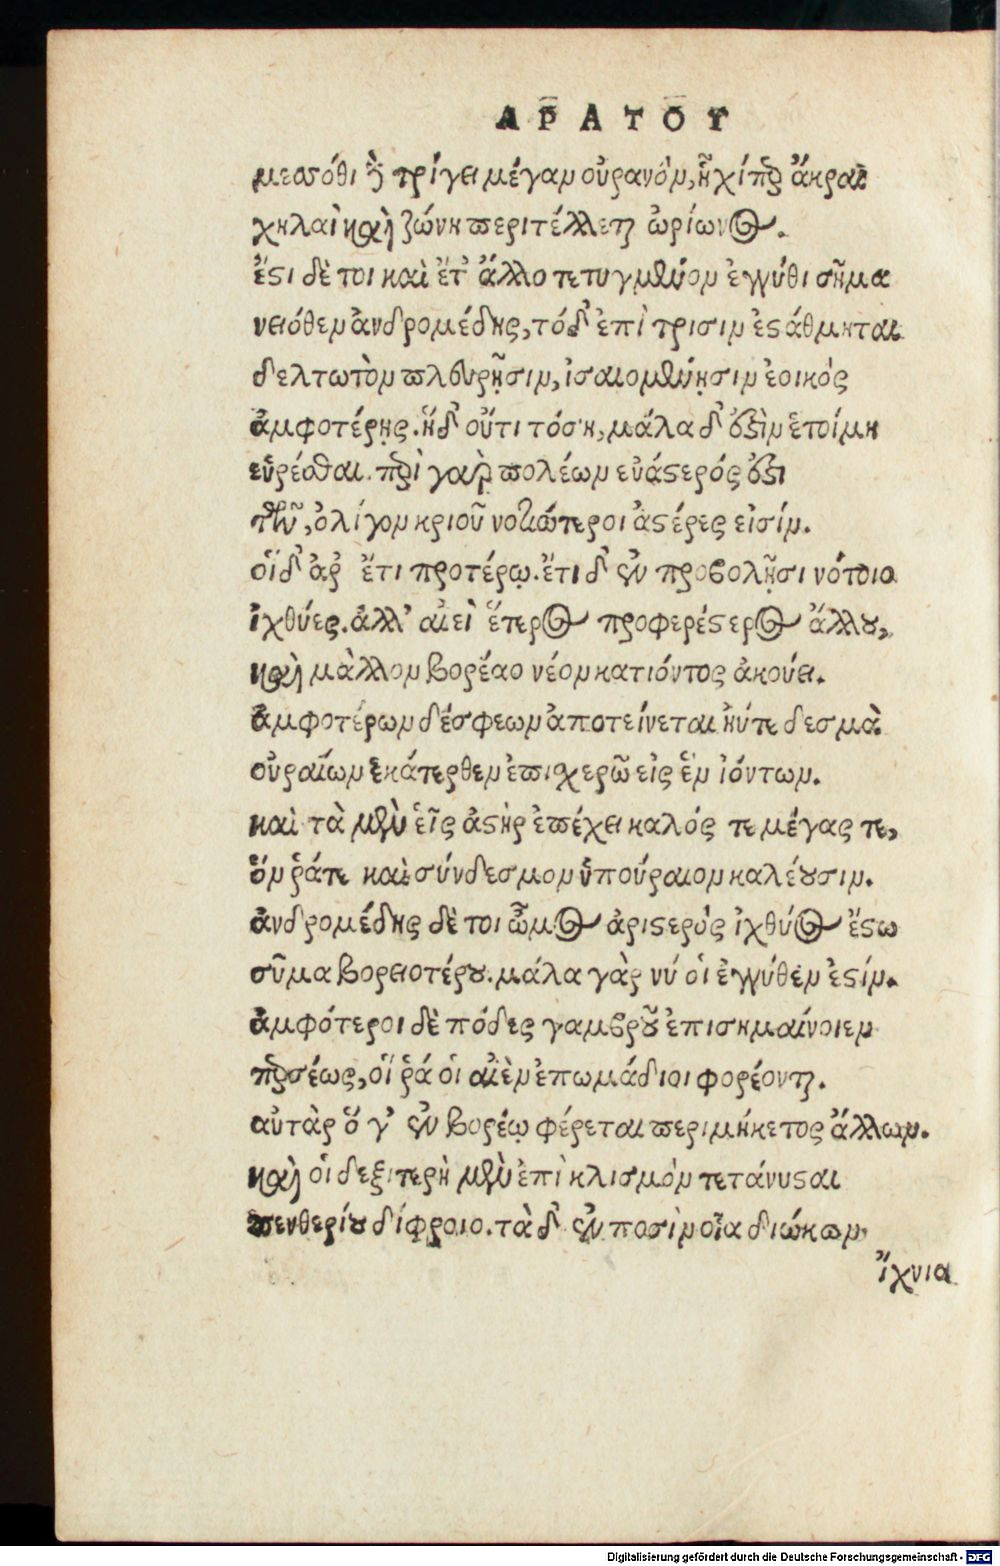 ΑΡΑΤΟΥ
μεσσόθι δὲ τρίγει μέγαν οὐρανὸν, ἧχί περ ἄκραι
χηλαὶ καὶ ζώνη περιτέλλεται ὠρίωνος.
ἔστι δὲ τοι καὶ ἔτ' ἄλλο τετυγμένον ἐγγύθι σῆμα
νειόθεν ἀνδρομέδης, τό δ' ἐπὶ τρισὶν ἐστάθμηται
δελτωτὸν πλευρῇσιν, ἰσαιομένῃσιν ἐοικὸς
ἀμφοτέρῃς. ἡ δ' οὔτι τόση, μάλα δ' ἐστὶν ἑτοίμη
εὑρέσθαι. περὶ γαρ πολέων εὐάστερός ἐστι
τῶν, ὀλίγον κριοῦ νοτιώτεροι ἀστέρες εἰσίν.
οἱ δ' ἀρ' ἔτι προτέρῳ. ἔτι δ' ἐν προβολῇσι νότοιο
ἰχθύες. ἀλλ' αἰεὶ ἕτερος προφερέστερος ἄλλου,
καὶ μᾶλλον βορέαο νέον κατιόντος ἀκούει.
ἀμφοτέρων δέ σφεων ἀποτείνεται ἠύτε δεσμὰ
οὐραίων ἑκάτερθεν ἐπισχερῶ εἰς ἓν ἰόντων.
καὶ τὰ μὲν εἷς ἀστὴρ ἐπέχει καλός τε μέγας τε,
ὅν ῥά τε καὶ σύνδεσμον ὑπούραιον καλέουσιν.
ἀνδρομέδης δὲ τοι ὦμος ἀριστερὸς ἰχθύος ἔστω
σῆμα βορειοτέρου. μάλα γὰρ νύ οἱ ἐγγύθεν ἐστίν.
ἀμφότεροι δὲ πόδες γαμβροῦ ἐπισημαίνοιεν
περσέως, οἵ ῥά οἱ αἰὲν ἐπωμάδιοι φορέονται.
αὐτὰρ ὅ γ' ἐν βορέῳ φέρεται περιμήκετος ἄλλων.
καὶ οἱ δεξιτερὴ μὲν ἐπὶ κλισμὸν τετάνυσται
πενθερίου δίφροιο. τὰ δ' ἐν ποσὶν οἷα διώκων,
ἴχνια
Digitalisierung gefördert durch die Deutsche Forschungsgemeinschaft - DFG